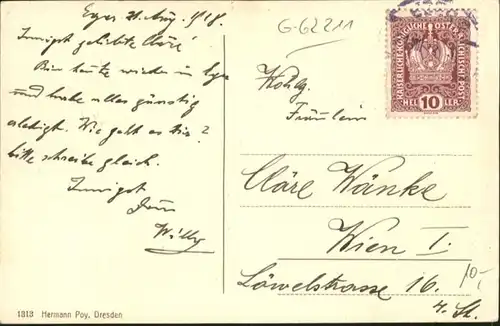 Eger 21. Aug. 1918.
Innigst geliebte Cläre!
Bin heute wieder in Eger
und habe alles günstig
erledigt. Wie geht es Dir?
bitte schreibe gleich.
Innigst
Dein
Willy
1313 Hermann Poy, Dresden
G-62211
KAISERLICHE KÖNIGLICHE ÖSTERREICHISCHE POST
HELLER 10
Fräulein
Cläre Wänke
Wien I.
Löwelstrasse 16.
10,-